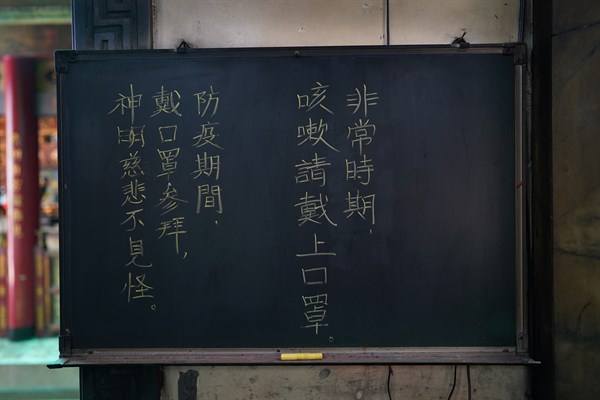 非常時期，
咳嗽請戴上口罩。
防疫期間，
戴口罩參拜，
神明慈悲不見怪。